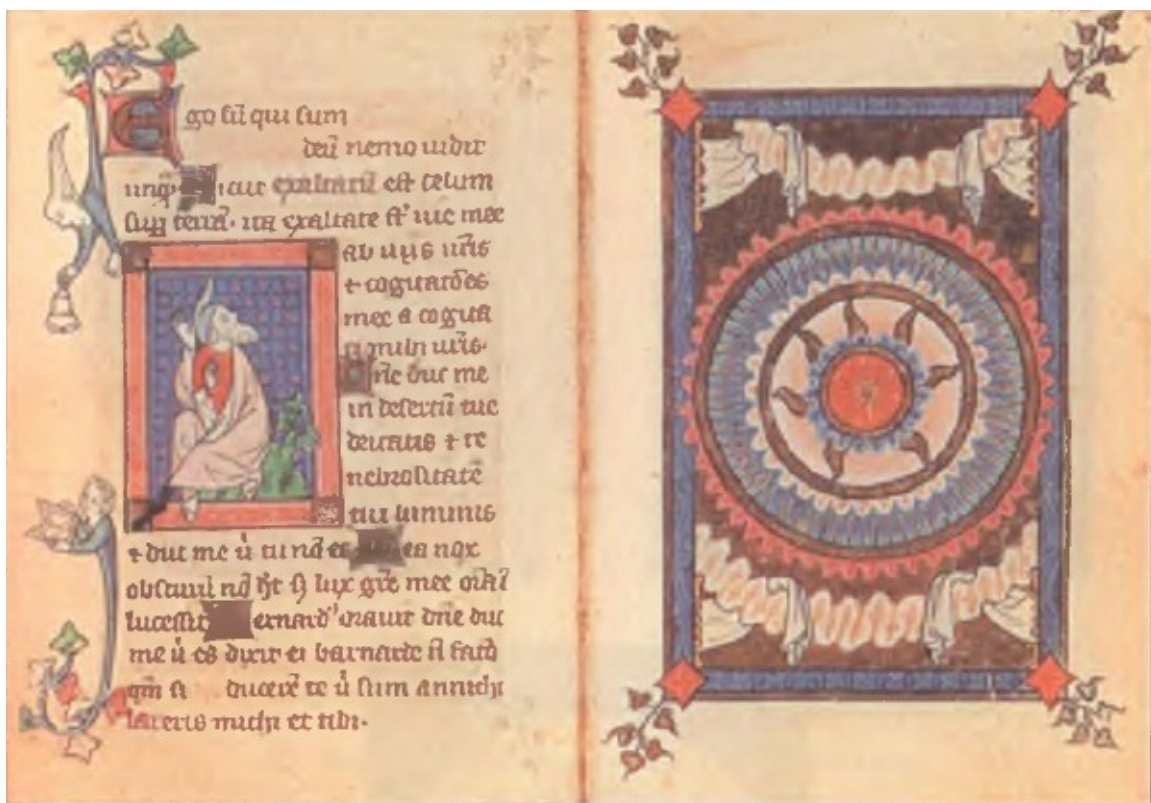 Ego sū qui sum
deū nemo vidit
unq̄ sicut exaltatū est celum
sup̄ terrā. ita exaltate st̄ vie mee
ab viis vr̄is
⁊ cogitatōes
mee a
vr̄is.
dn̄e duc me
in desertū tue
deitatis ⁊ te
nebrositatē
tui luminis
⁊ duc me ū tu nō es nox
nō hȝ lux gl̄ie mee
ernard' oravit dn̄e duc
me ū es dixit ei barnarde n̄ faciā
qm̄ si ducerē te ū sum annichi
laveris michi et tibi.